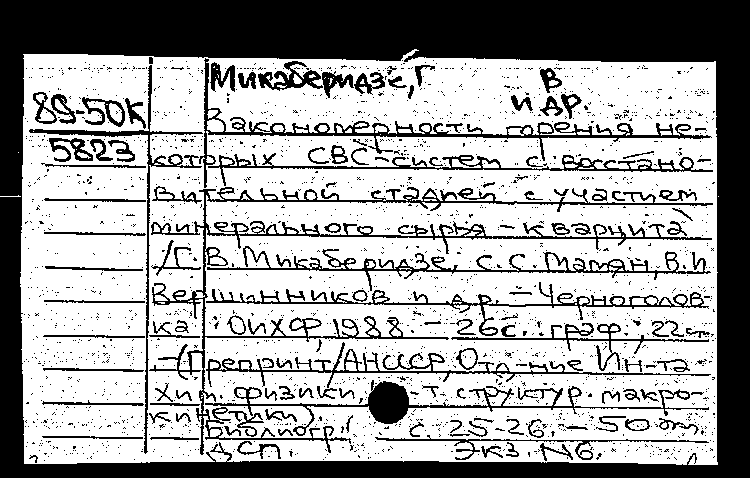 Микаберидзе, Г В
и др.
89-50К
5823
Закономерности горения не-
которых СВС-систем с восстано-
вительной стадией с участием
минерального сырья - кварцита
/Г.В. Микаберидзе, С.С. Мамян, В.И
Вершинников и др. - Черноголов-
ка : ОИХФ, 1988. - 26с. : граф.; 22см
. -(Препринт/АН СССР, Отд-ние Ин-та
хим. физики, -т структур. макро-
кинетики).
Библиогр.: с. 25-26. - 50 эт.
ДСП. Экз. N6.